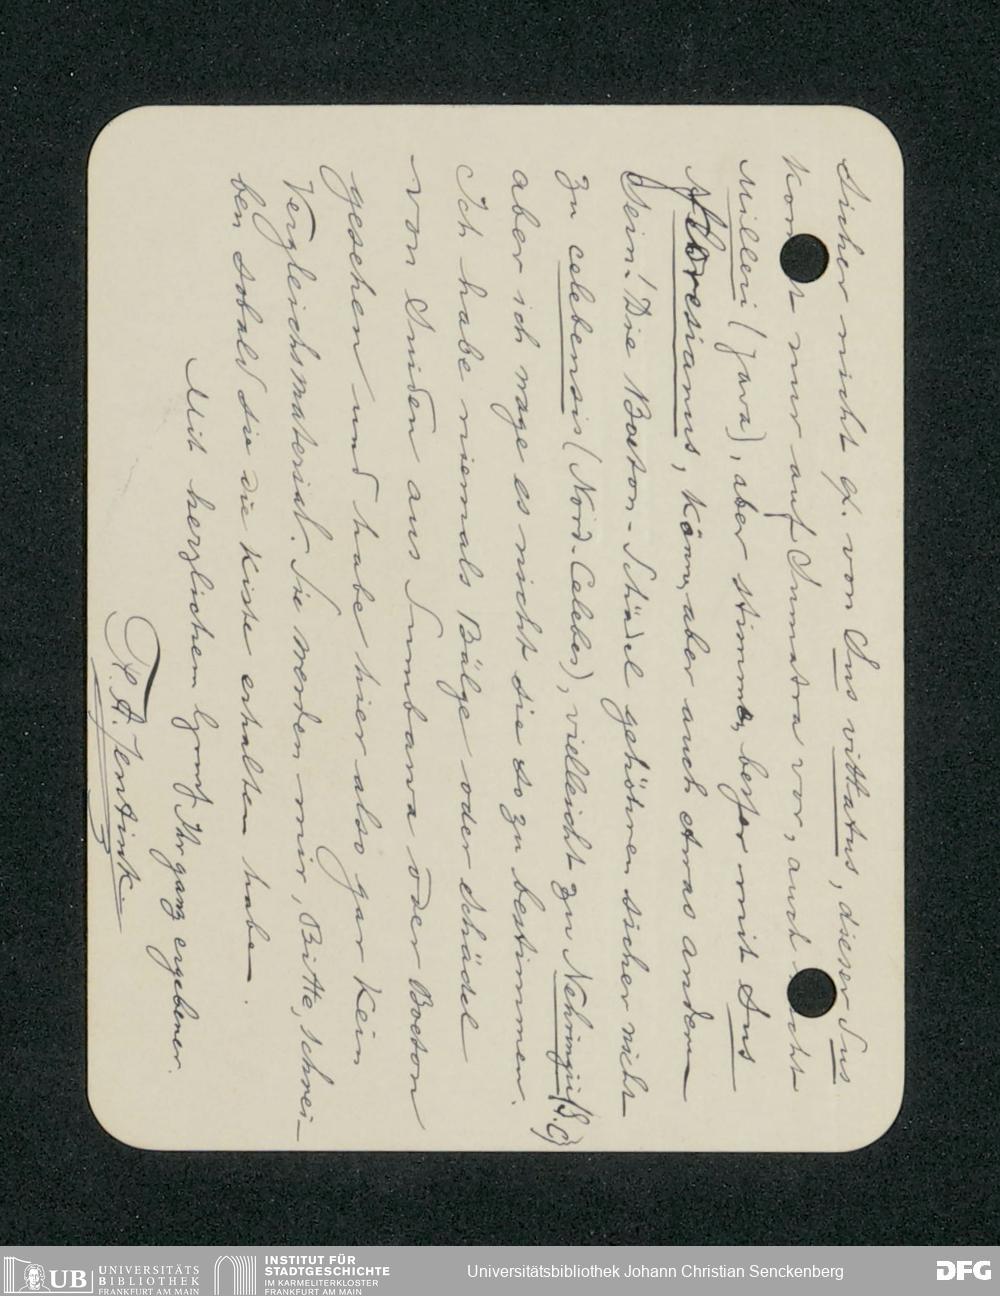 Sicher nicht d. von Sus vittatus, dieser Sus
kommt nur auf Sumatra vor, auch nicht
milleri (Java), aber stimmen besser mit Sus
floresianus, könn, aber auch etwas anderen
sein! Die Boeton-Schädel gehören sicher nicht
zu celebensis (Nord-Celebes), vielleicht zu Nehringii (S.C)
aber ich wage es nicht sie so zu bestimmen.
Ich habe niemals Bälge oder Schädel
von Suiden aus Sumbawa oder Boeton
gesehen und habe hier also gar kein
Vergleichsmaterial. Sie werden mir, Bitte, schrei-
ben sobald Sie die Kiste erhalten haben.
Mit herzlichem Gruß Ihr ganz ergebener.
F. A. Jentink.
UB UNIVERSITÄTS
BIBLIOTHEK
FRANKFURT AM MAIN
INSTITUT FÜR
STADTGESCHICHTE
IM KARMELITERKLOSTER
FRANKFURT AM MAIN
Universitätsbibliothek Johann Christian Senckenberg
DFG